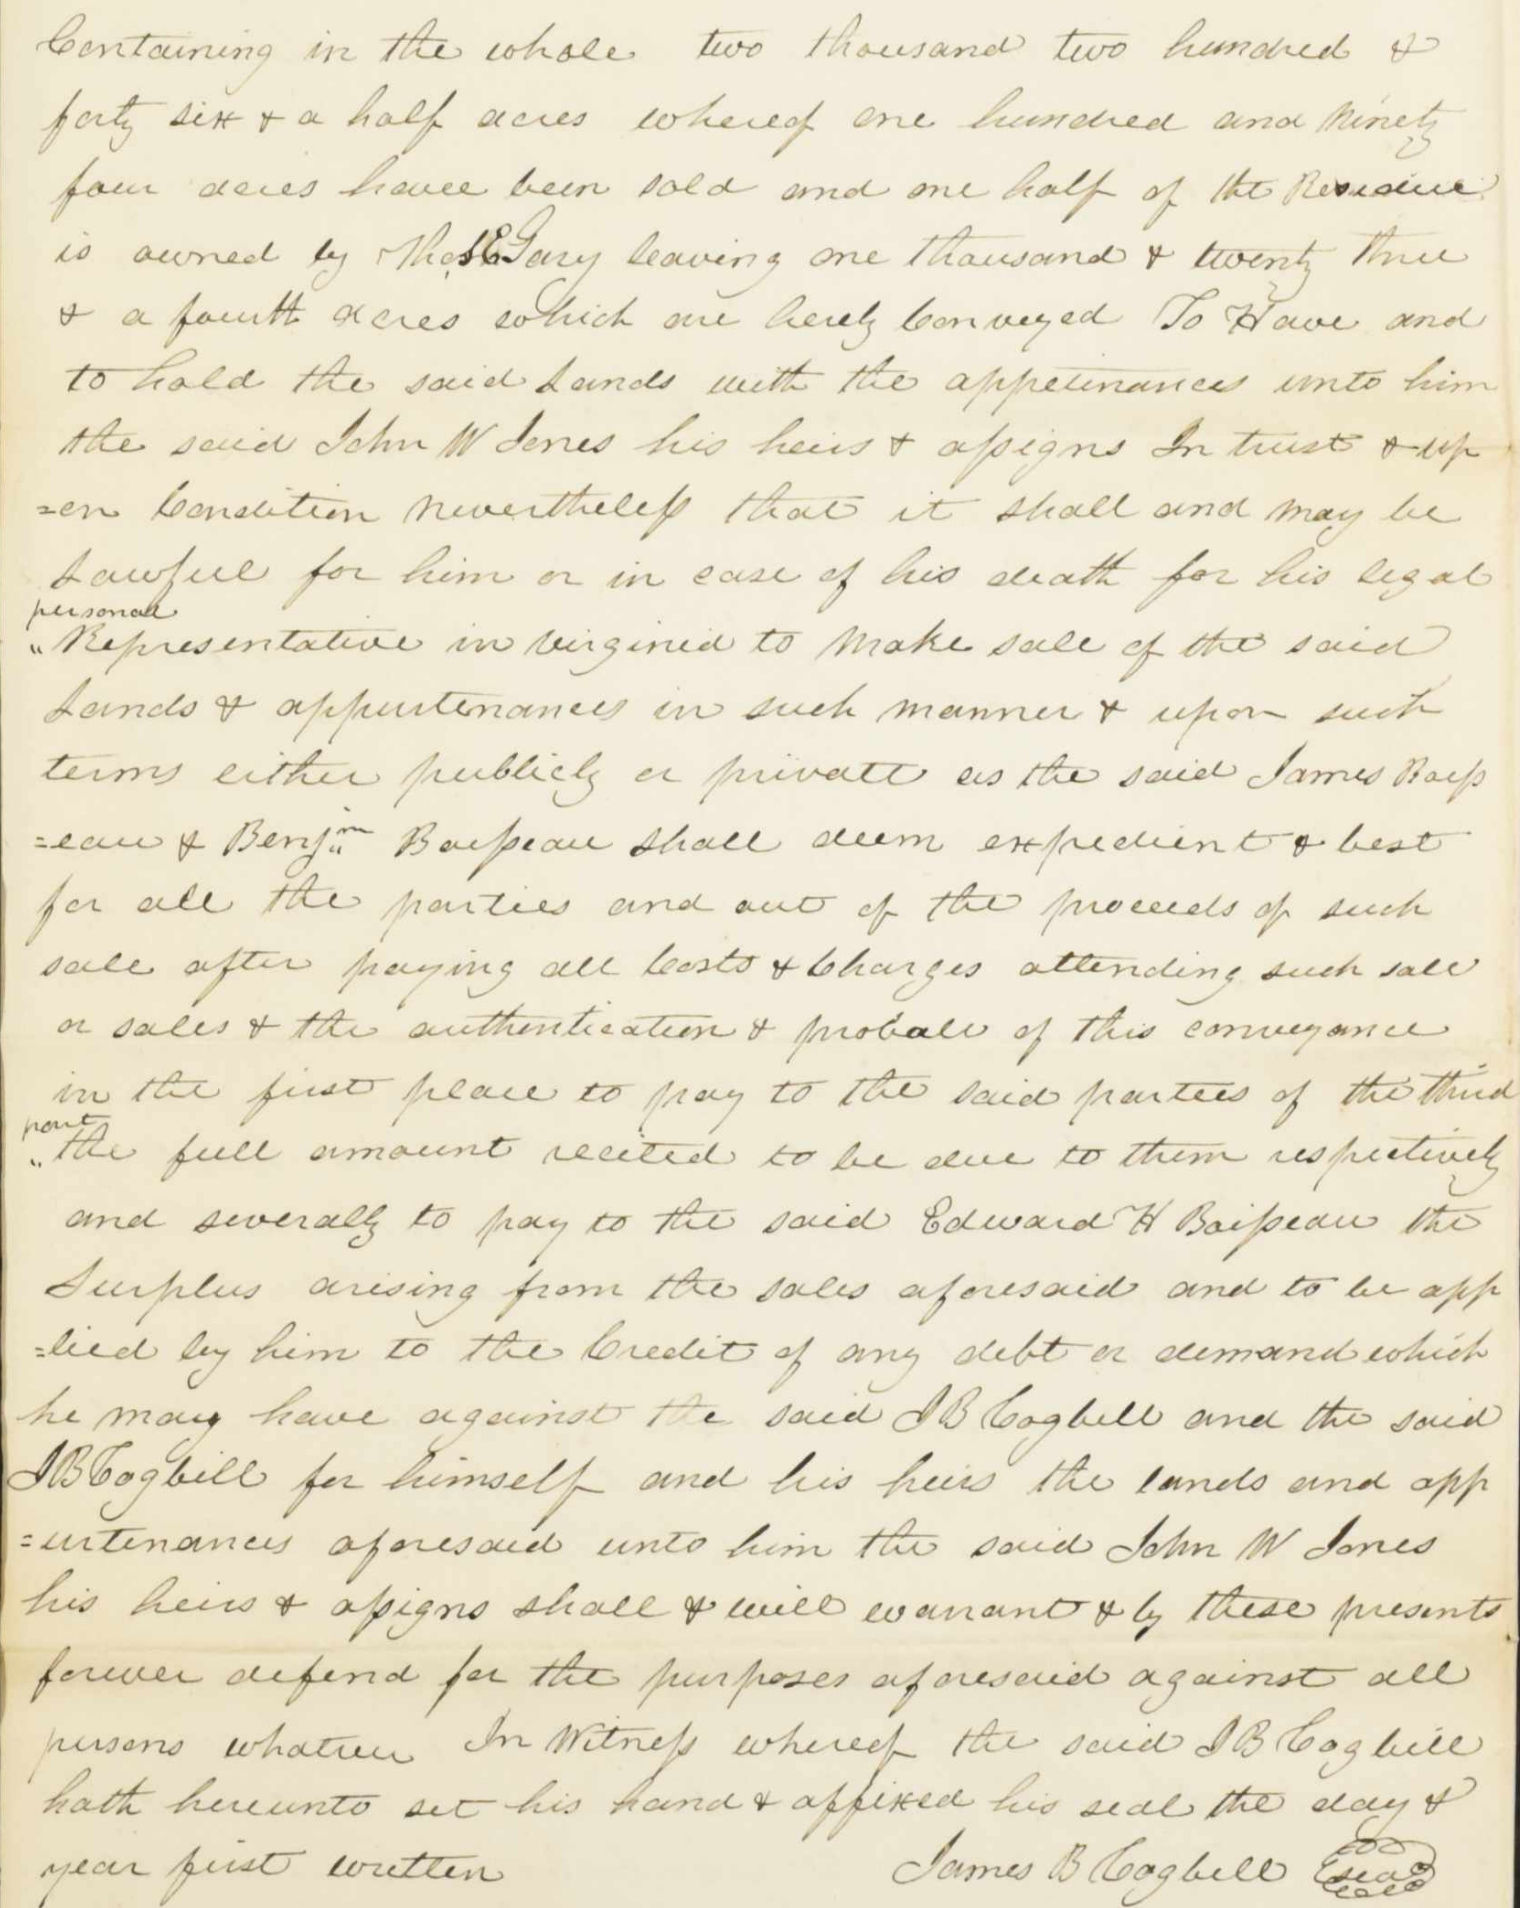 Containing in the whole two thousand two hundred &
forty six & a half acres whereof one hundred and Ninety
four acres have been sold and one half of the Residue
is owned by Thos E Gary leaving one thousand & twenty three
& a fourth acres which are hereby Conveyed To Have and
to hold the said Lands with the appertinances unto him
the said John W Jones his heirs & assigns In trust & up
=on Condition Nevertheless that it shall and may be
Lawful for him or in case of his death for his legal
personal
"Representative in Virginia to Make sale of the said
Lands & appurtenances in such manner & upon such
terms either publicly or private as the said James Boiss
=eau & Benjm Boisseau Shall deem expedient & best
for all the parties and out of the proceeds of such
sale after paying all Costs & Charges attending such sale
or sales & the authentication & probate of this conveyance
in the first place to pay to the said parties of the third
part
"the full amount recited to be due to them respectively
and severally to pay to the said Edward H Boisseau the
Surplus arising from the sales aforesaid and to be app
=lied by him to the Credit of any debt or demand which
he may have against the said J B Cogbill and the said
J B Cogbill for himself and his heirs the lands and app
=urtenances aforesaid unto him the said John W Jones
his heirs & assigns shall & will warrant & by these presents
forever defend for the purposes aforesaid against all
persons whatever In Witness whereof the said J B Cogbill
hath hereunto set his hand & affixed his seal the day &
year first written James B Cogbill Seal